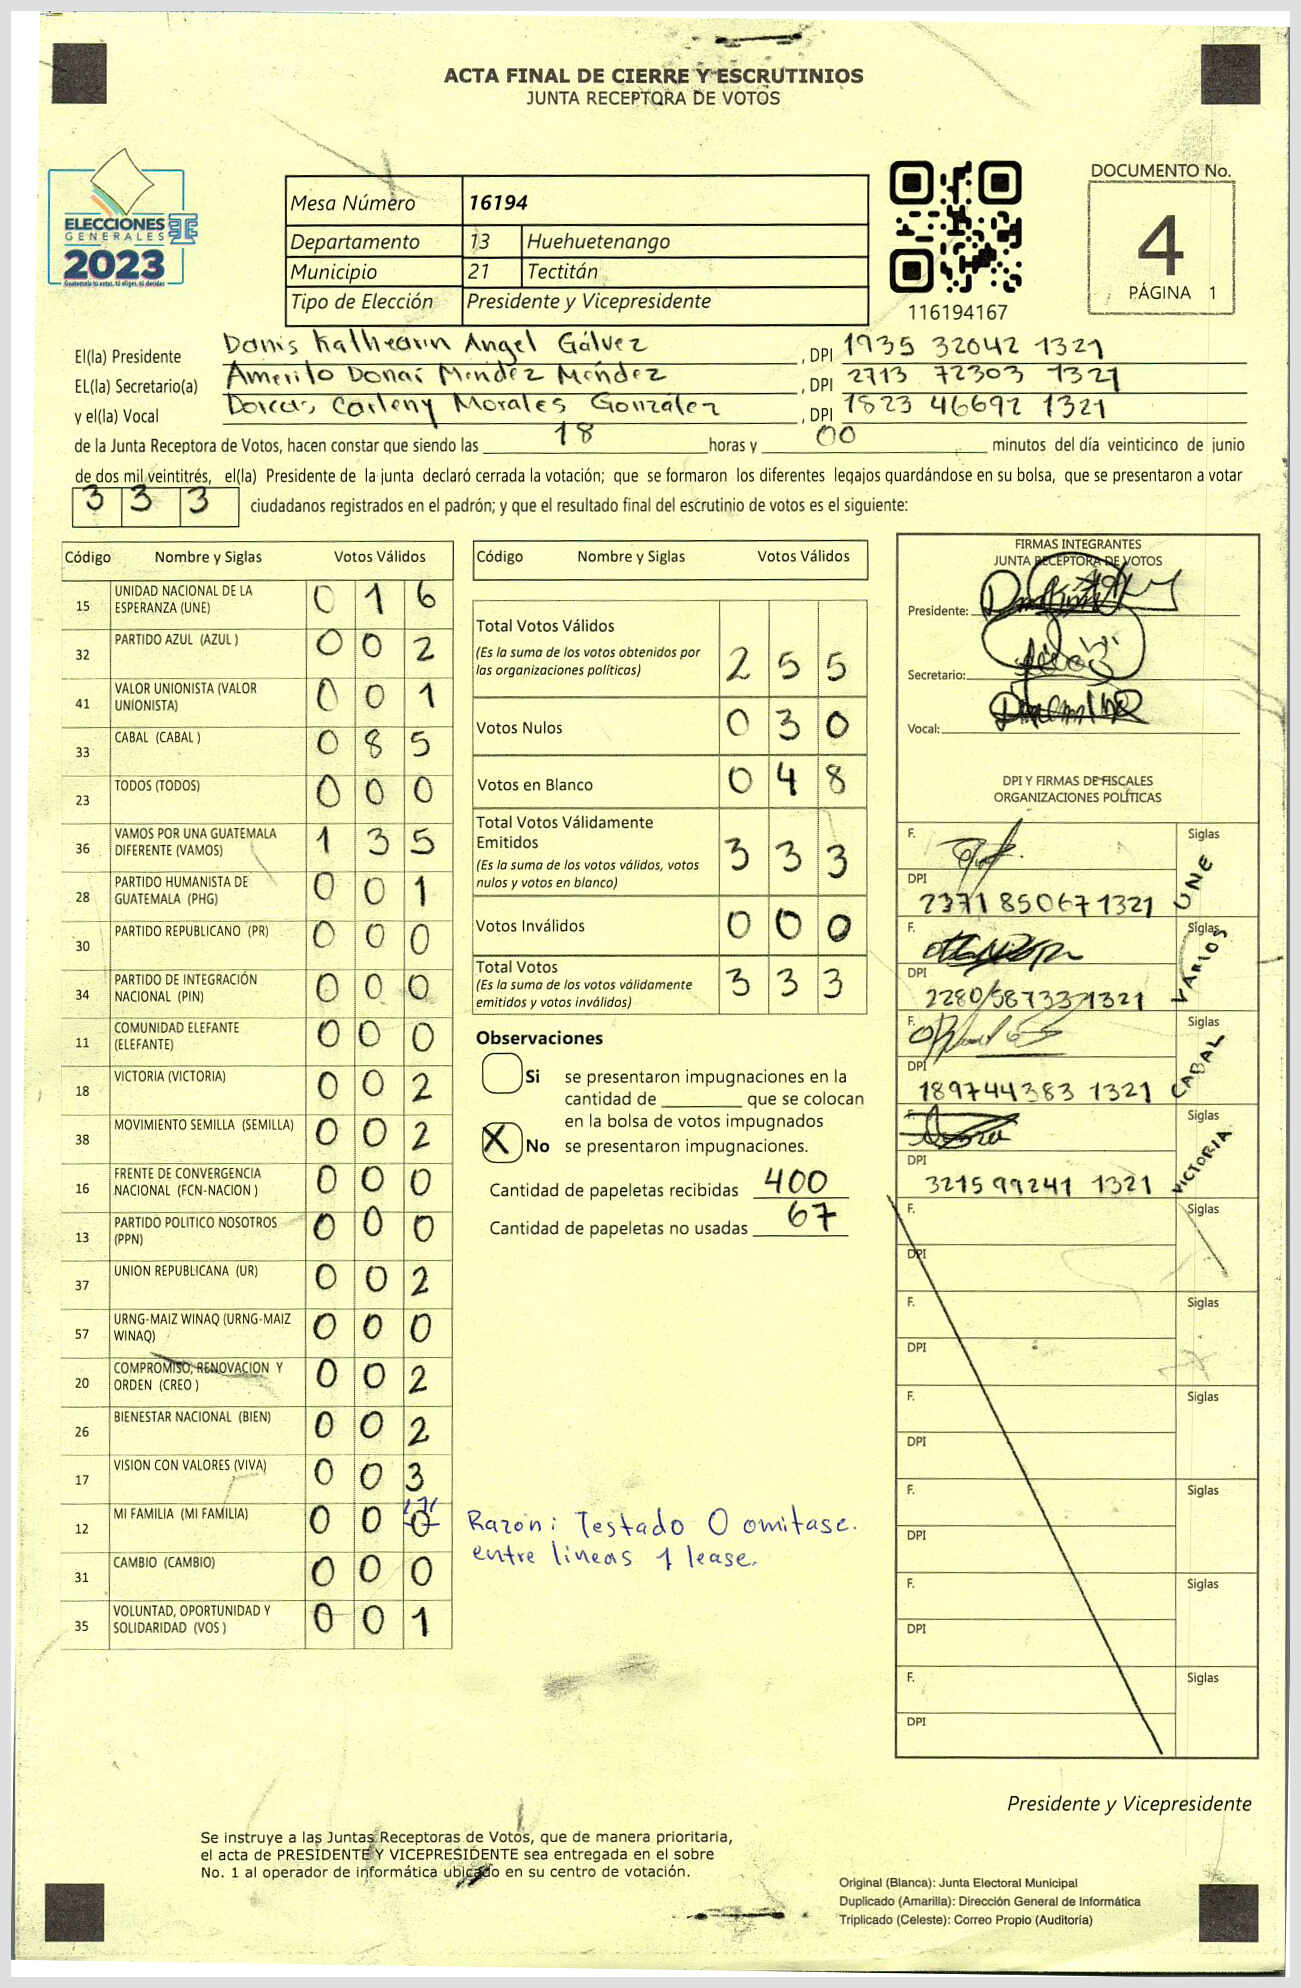 ACTA FINAL DE CIERRE Y ESCRUTINIOS
JUNTA RECEPTORA DE VOTOS
ELECCIONES
GENERALES
2023
Guatemala tú votas, tú eliges, tú decides
Mesa Número 16194
Departamento 13 Huehuetenango
Municipio 21 Tectitán
Tipo de Elección Presidente y Vicepresidente
116194167
DOCUMENTO No.
4
PÁGINA 1
El(la) Presidente Donis Katthearin Angel Gálvez, DPI 1935 32042 1321
EL(la) Secretario(a) Amerito Donaí Mendéz Mendéz, DPI 2713 72303 1321
y el(la) Vocal Dorcas Carleny Morales González, DPI 1823 46692 1321
de la Junta Receptora de Votos, hacen constar que siendo las 18 horas y 00 minutos del día veinticinco de junio
de dos mil veintitrés, el(la) Presidente de la junta declaró cerrada la votación; que se formaron los diferentes legajos guardándose en su bolsa, que se presentaron a votar
3 3 3 ciudadanos registrados en el padrón; y que el resultado final del escrutinio de votos es el siguiente:
Código Nombre y Siglas Votos Válidos
15 UNIDAD NACIONAL DE LA ESPERANZA (UNE) 0 1 6
32 PARTIDO AZUL (AZUL ) 0 0 2
41 VALOR UNIONISTA (VALOR UNIONISTA) 0 0 1
33 CABAL (CABAL ) 0 8 5
23 TODOS (TODOS) 0 0 0
36 VAMOS POR UNA GUATEMALA DIFERENTE (VAMOS) 1 3 5
28 PARTIDO HUMANISTA DE GUATEMALA (PHG) 0 0 1
30 PARTIDO REPUBLICANO (PR) 0 0 0
34 PARTIDO DE INTEGRACIÓN NACIONAL (PIN) 0 0 0
11 COMUNIDAD ELEFANTE (ELEFANTE) 0 0 0
18 VICTORIA (VICTORIA) 0 0 2
38 MOVIMIENTO SEMILLA (SEMILLA) 0 0 2
16 FRENTE DE CONVERGENCIA NACIONAL (FCN-NACION ) 0 0 0
13 PARTIDO POLITICO NOSOTROS (PPN) 0 0 0
37 UNION REPUBLICANA (UR) 0 0 2
57 URNG-MAIZ WINAQ (URNG-MAIZ WINAQ) 0 0 0
20 COMPROMISO, RENOVACION Y ORDEN (CREO ) 0 0 2
26 BIENESTAR NACIONAL (BIEN) 0 0 2
17 VISION CON VALORES (VIVA) 0 0 3
12 MI FAMILIA (MI FAMILIA) 0 0 0 1
31 CAMBIO (CAMBIO) 0 0 0
35 VOLUNTAD, OPORTUNIDAD Y SOLIDARIDAD (VOS ) 0 0 1
Código Nombre y Siglas Votos Válidos
Total Votos Válidos
(Es la suma de los votos obtenidos por
las organizaciones políticas) 2 5 5
Votos Nulos 0 3 0
Votos en Blanco 0 4 8
Total Votos Válidamente
Emitidos
(Es la suma de los votos válidos, votos
nulos y votos en blanco) 3 3 3
Votos Inválidos 0 0 0
Total Votos
(Es la suma de los votos válidamente
emitidos y votos inválidos) 3 3 3
Observaciones
Si se presentaron impugnaciones en la
cantidad de ________ que se colocan
en la bolsa de votos impugnados
X No se presentaron impugnaciones.
Cantidad de papeletas recibidas 400
Cantidad de papeletas no usadas 67
Razón: Testado 0 omitase.
entre lineas 1 lease.
FIRMAS INTEGRANTES
JUNTA RECEPTORA DE VOTOS
Presidente:
Secretario:
Vocal:
DPI Y FIRMAS DE FISCALES
ORGANIZACIONES POLÍTICAS
F. Siglas UNE
DPI 2371 85067 1321
F. Siglas VARIOS
DPI 2280 58733 1321
F. Siglas CABAL
DPI 189744383 1321
F. Siglas VICTORIA
DPI 3215 99241 1321
F. Siglas
DPI
F. Siglas
DPI
F. Siglas
DPI
F. Siglas
DPI
F. Siglas
DPI
F. Siglas
DPI
Presidente y Vicepresidente
Se instruye a las Juntas Receptoras de Votos, que de manera prioritaria,
el acta de PRESIDENTE Y VICEPRESIDENTE sea entregada en el sobre
No. 1 al operador de informática ubicado en su centro de votación.
Original (Blanca): Junta Electoral Municipal
Duplicado (Amarilla): Dirección General de Informática
Triplicado (Celeste): Correo Propio (Auditoría)